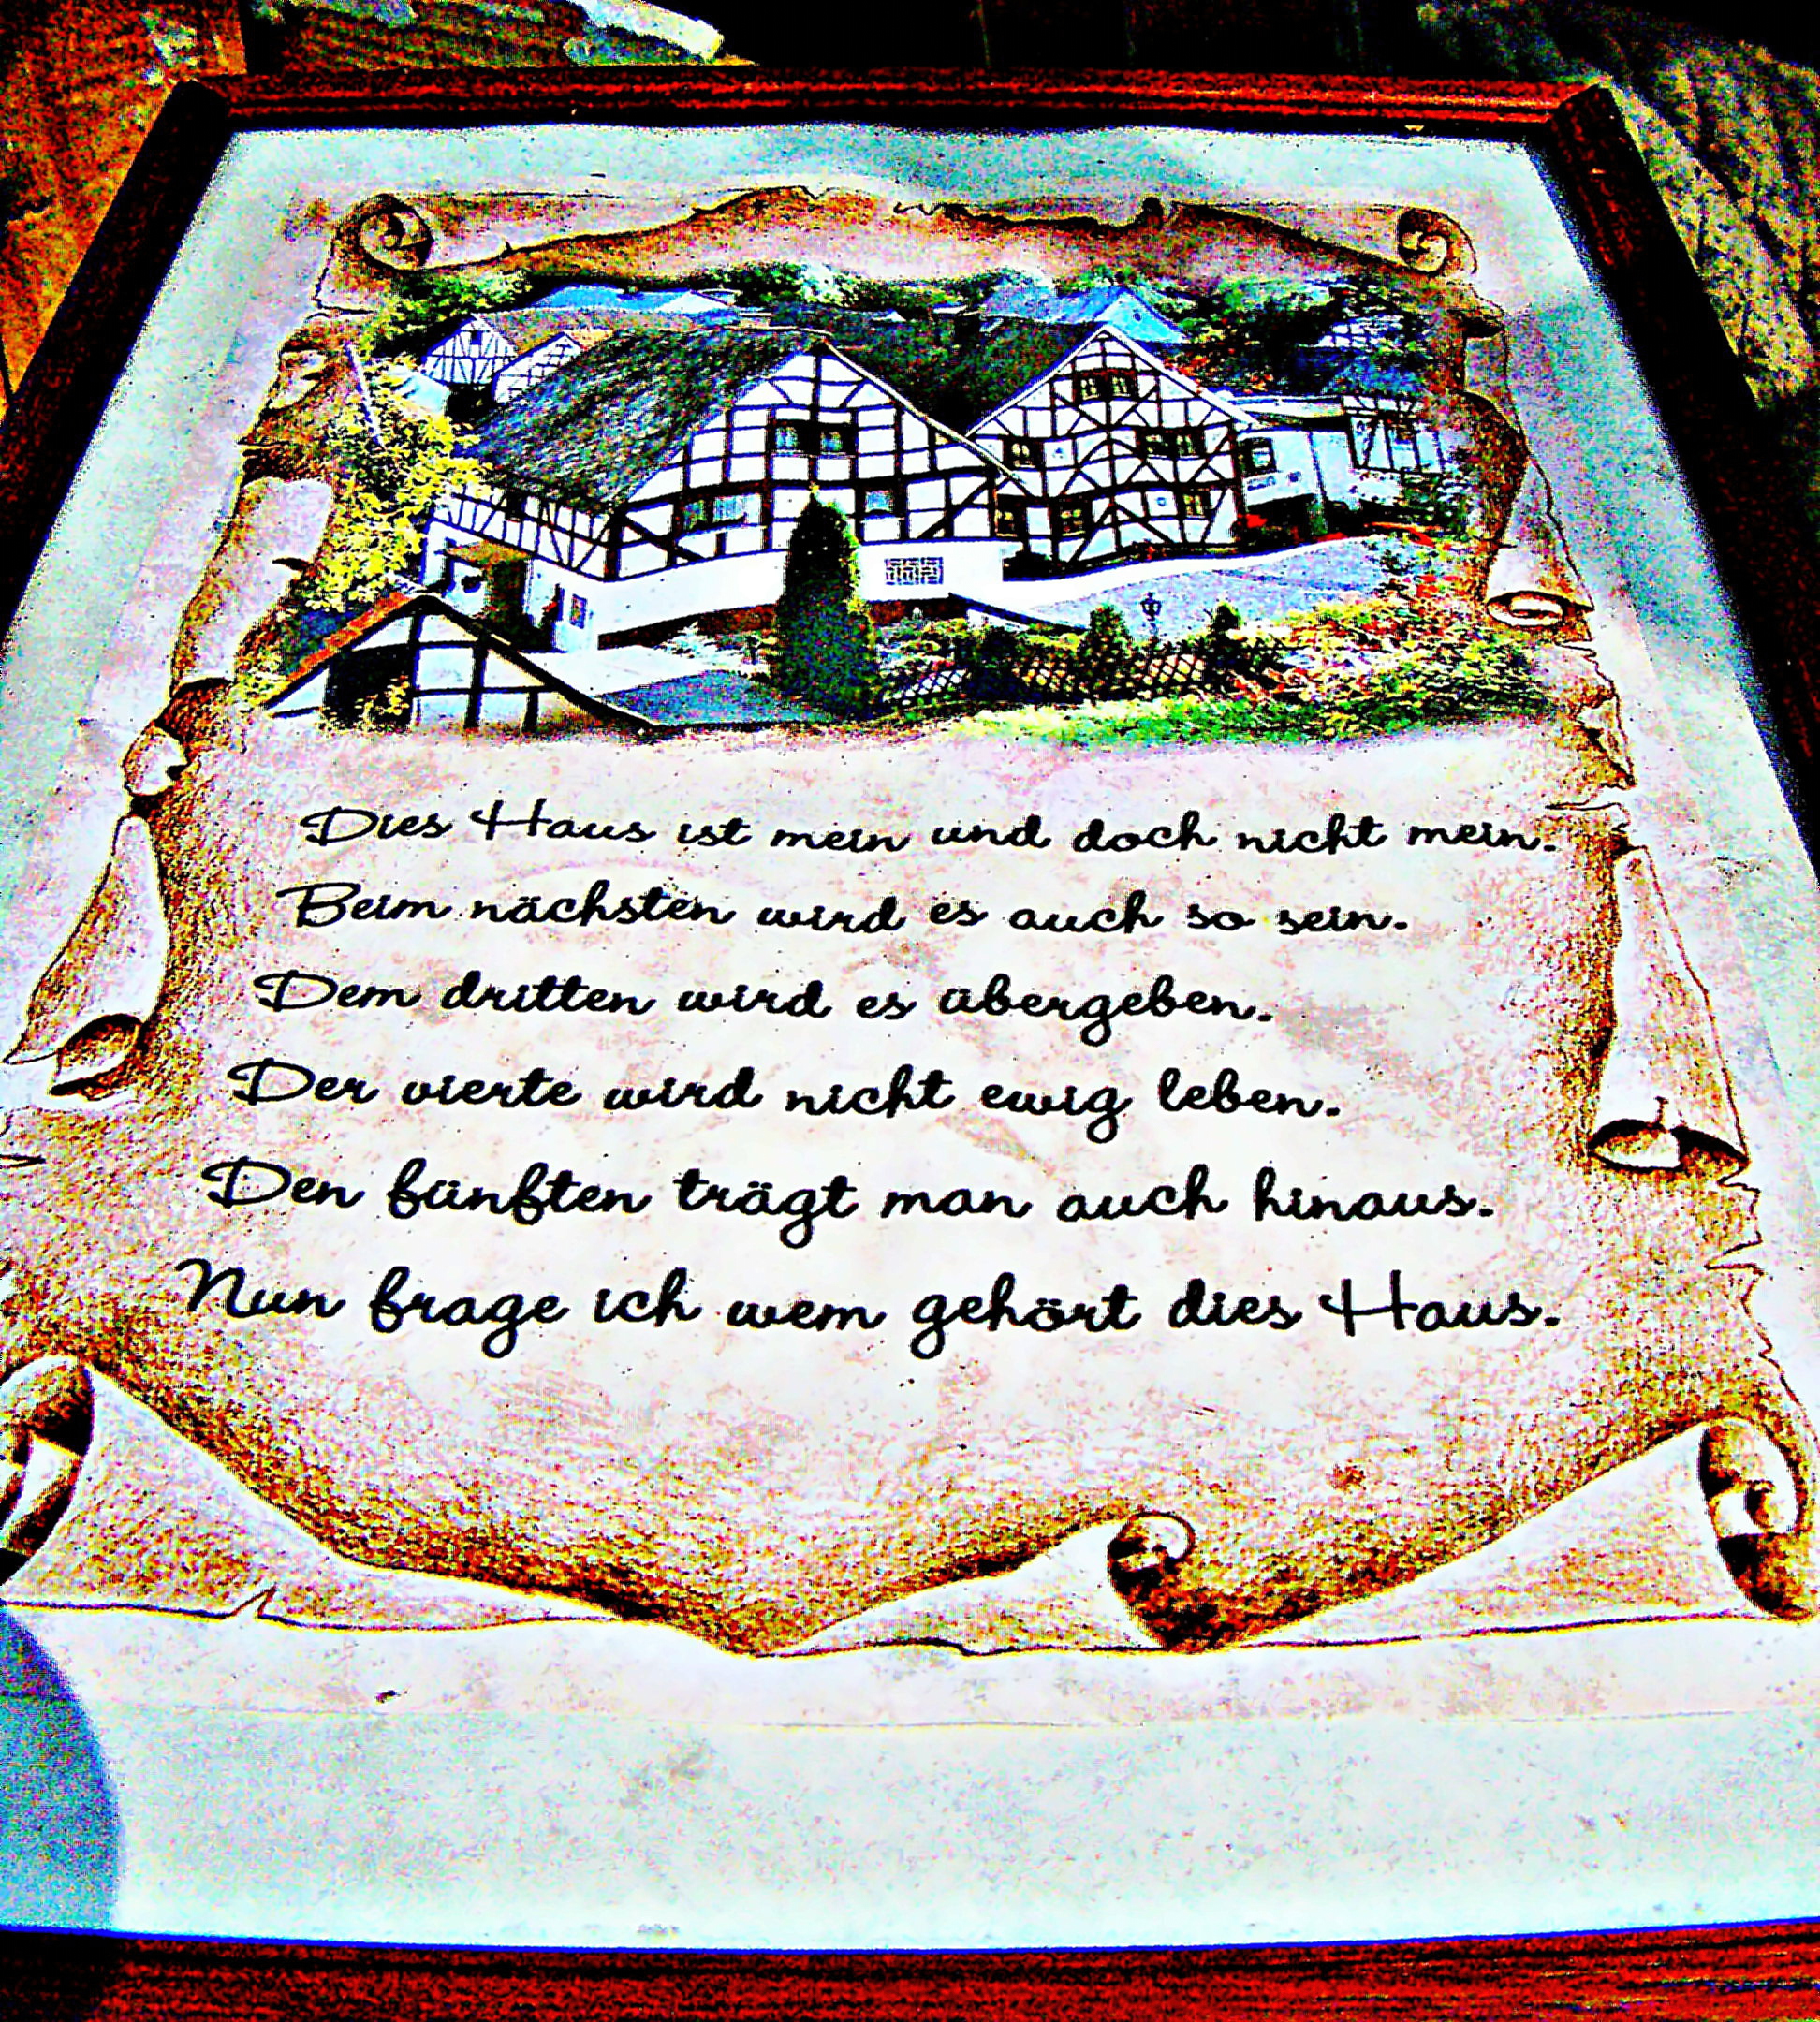 Dies Haus ist mein und doch nicht mein.
Beim nächsten wird es auch so sein.
Dem dritten wird es übergeben.
Der vierte wird nicht ewig leben.
Den fünften trägt man auch hinaus.
Nun frage ich wem gehört dies Haus.